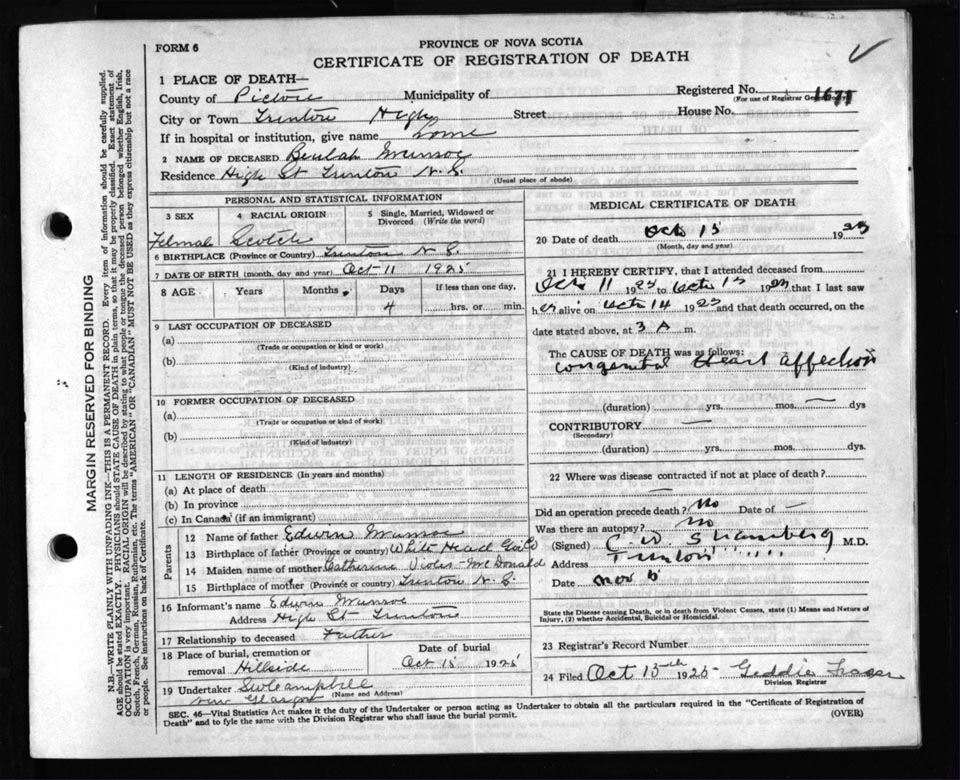 FORM 6
PROVINCE OF NOVA SCOTIA
CERTIFICATE OF REGISTRATION OF DEATH
1 PLACE OF DEATH—
County of Pictou Municipality of Registered No. 1671
(For use of Registrar General only)
City or Town Trenton High Street House No.
If in hospital or institution, give name home
2 NAME OF DECEASED Beulah Munroe
Residence High St Trenton N. S.
(Usual place of abode)
PERSONAL AND STATISTICAL INFORMATION
3 SEX 4 RACIAL ORIGIN 5 Single, Married, Widowed or Divorced (Write the word)
Femal Scotch
6 BIRTHPLACE (Province or Country) Trenton N. S.
7 DATE OF BIRTH (month, day and year) Oct 11 1925
8 AGE Years Months Days If less than one day,
4 hrs. or min.
9 LAST OCCUPATION OF DECEASED
(a)
(Trade or occupation or kind of work)
(b)
(Kind of industry)
10 FORMER OCCUPATION OF DECEASED
(a)
(Trade or occupation or kind of work)
(b)
(Kind of industry)
11 LENGTH OF RESIDENCE (In years and months)
(a) At place of death
(b) In province
(c) In Canada (if an immigrant)
Parents
12 Name of father Edwin Munroe
13 Birthplace of father (Province or country) White Head
14 Maiden name of mother Catherine McDonald
15 Birthplace of mother (Province or country) Trenton N. S.
16 Informant's name Edwin Munroe
Address High St Trenton
17 Relationship to deceased Father
18 Place of burial, cremation or removal Hillside
Date of burial
Oct 15 1925
19 Undertaker Campbell
New Glasgow
(Name and Address)
MEDICAL CERTIFICATE OF DEATH
20 Date of death Oct 15 1925
(Month, day and year)
21 I HEREBY CERTIFY, that I attended deceased from
Oct 11 1925 to Oct 15 1925 that I last saw
her alive on Oct 14 1925 and that death occurred, on the
date stated above, at 3 A m.
The CAUSE OF DEATH was as follows:
Congenital Heart affection
(duration) yrs. mos. — dys
CONTRIBUTORY —
(Secondary)
(duration) yrs. mos. dys.
22 Where was disease contracted if not at place of death?
—
Did an operation precede death? No Date of —
Was there an autopsy? No
(Signed) C W M.D.
Address Trenton
Date Nov
State the Disease causing Death, or in death from Violent Causes, state (1) Means and Nature of
Injury, (2) whether Accidental, Suicidal or Homicidal.
23 Registrar's Record Number
24 Filed Oct 15th 1925 Geddie Fraser
Division Registrar
SEC. 46—Vital Statistics Act makes it the duty of the Undertaker or person acting as Undertaker to obtain all the particulars required in the "Certificate of Registration of
Death" and to fyle the same with the Division Registrar who shall issue the burial permit.
(OVER)
MARGIN RESERVED FOR BINDING
N.B.—WRITE PLAINLY WITH UNFADING INK—THIS IS A PERMANENT RECORD. Every item of information should be carefully supplied.
AGE should be stated EXACTLY. PHYSICIANS should STATE CAUSE OF DEATH in plain terms, so that it may be properly classified. Exact statement of
OCCUPATION is very important. RACIAL ORIGIN will be described by stating to what people or tongue the deceased person belonged whether English, Irish,
Scotch, French, German, Russian, Ruthenian, etc. The terms "AMERICAN" OR "CANADIAN" MUST NOT BE USED as they express citizenship but not a race
or people. See instructions on back of Certificate.